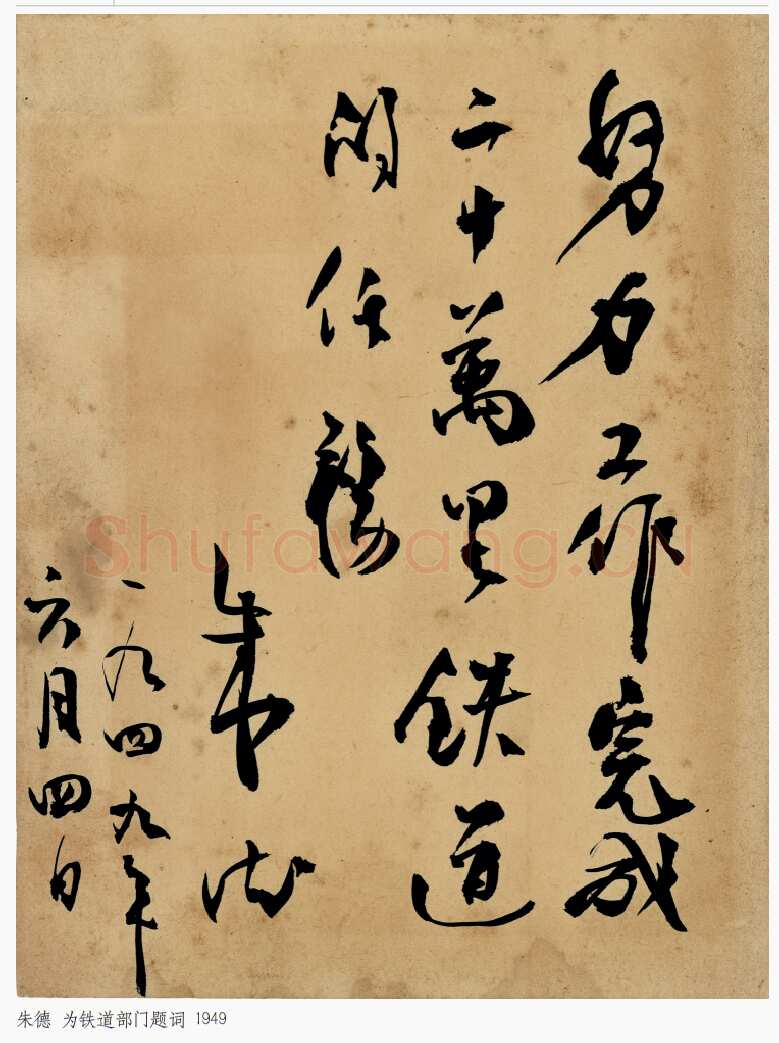 努力工作完成
二十萬里鉄道
的任務
朱德
一九四九年
六月四日
Shufawang.CN
朱德 为铁道部门题词 1949